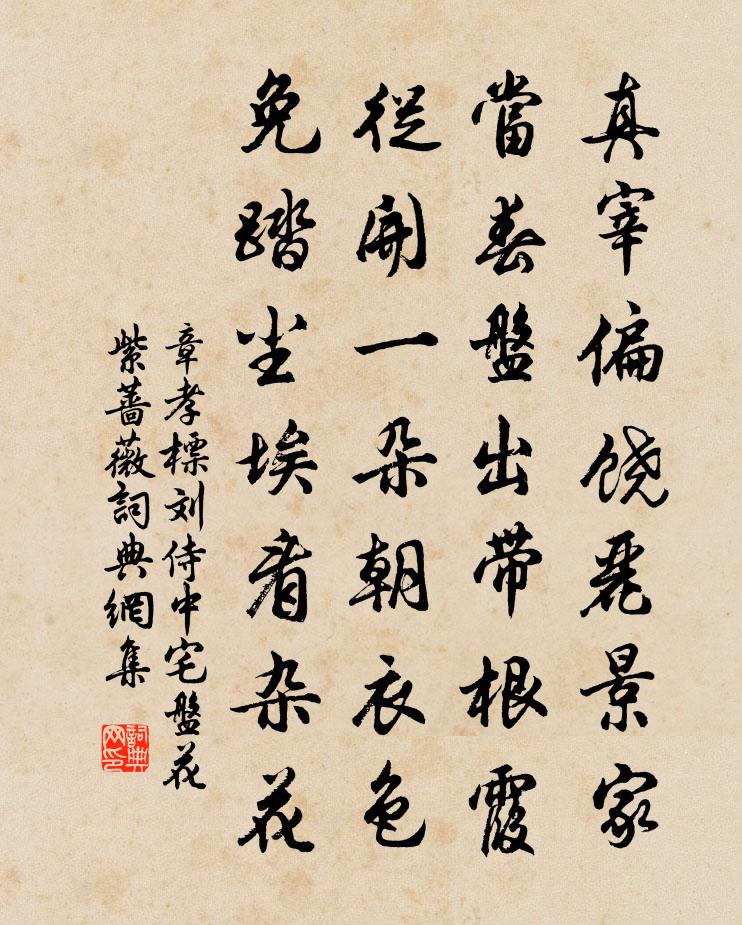 真宰偏饶麗景家
當春盤出带根霞
從開一朵朝衣色
免踏尘埃看杂花
章孝標刘侍中宅盤花
紫薔薇詞典網集
詞典网印